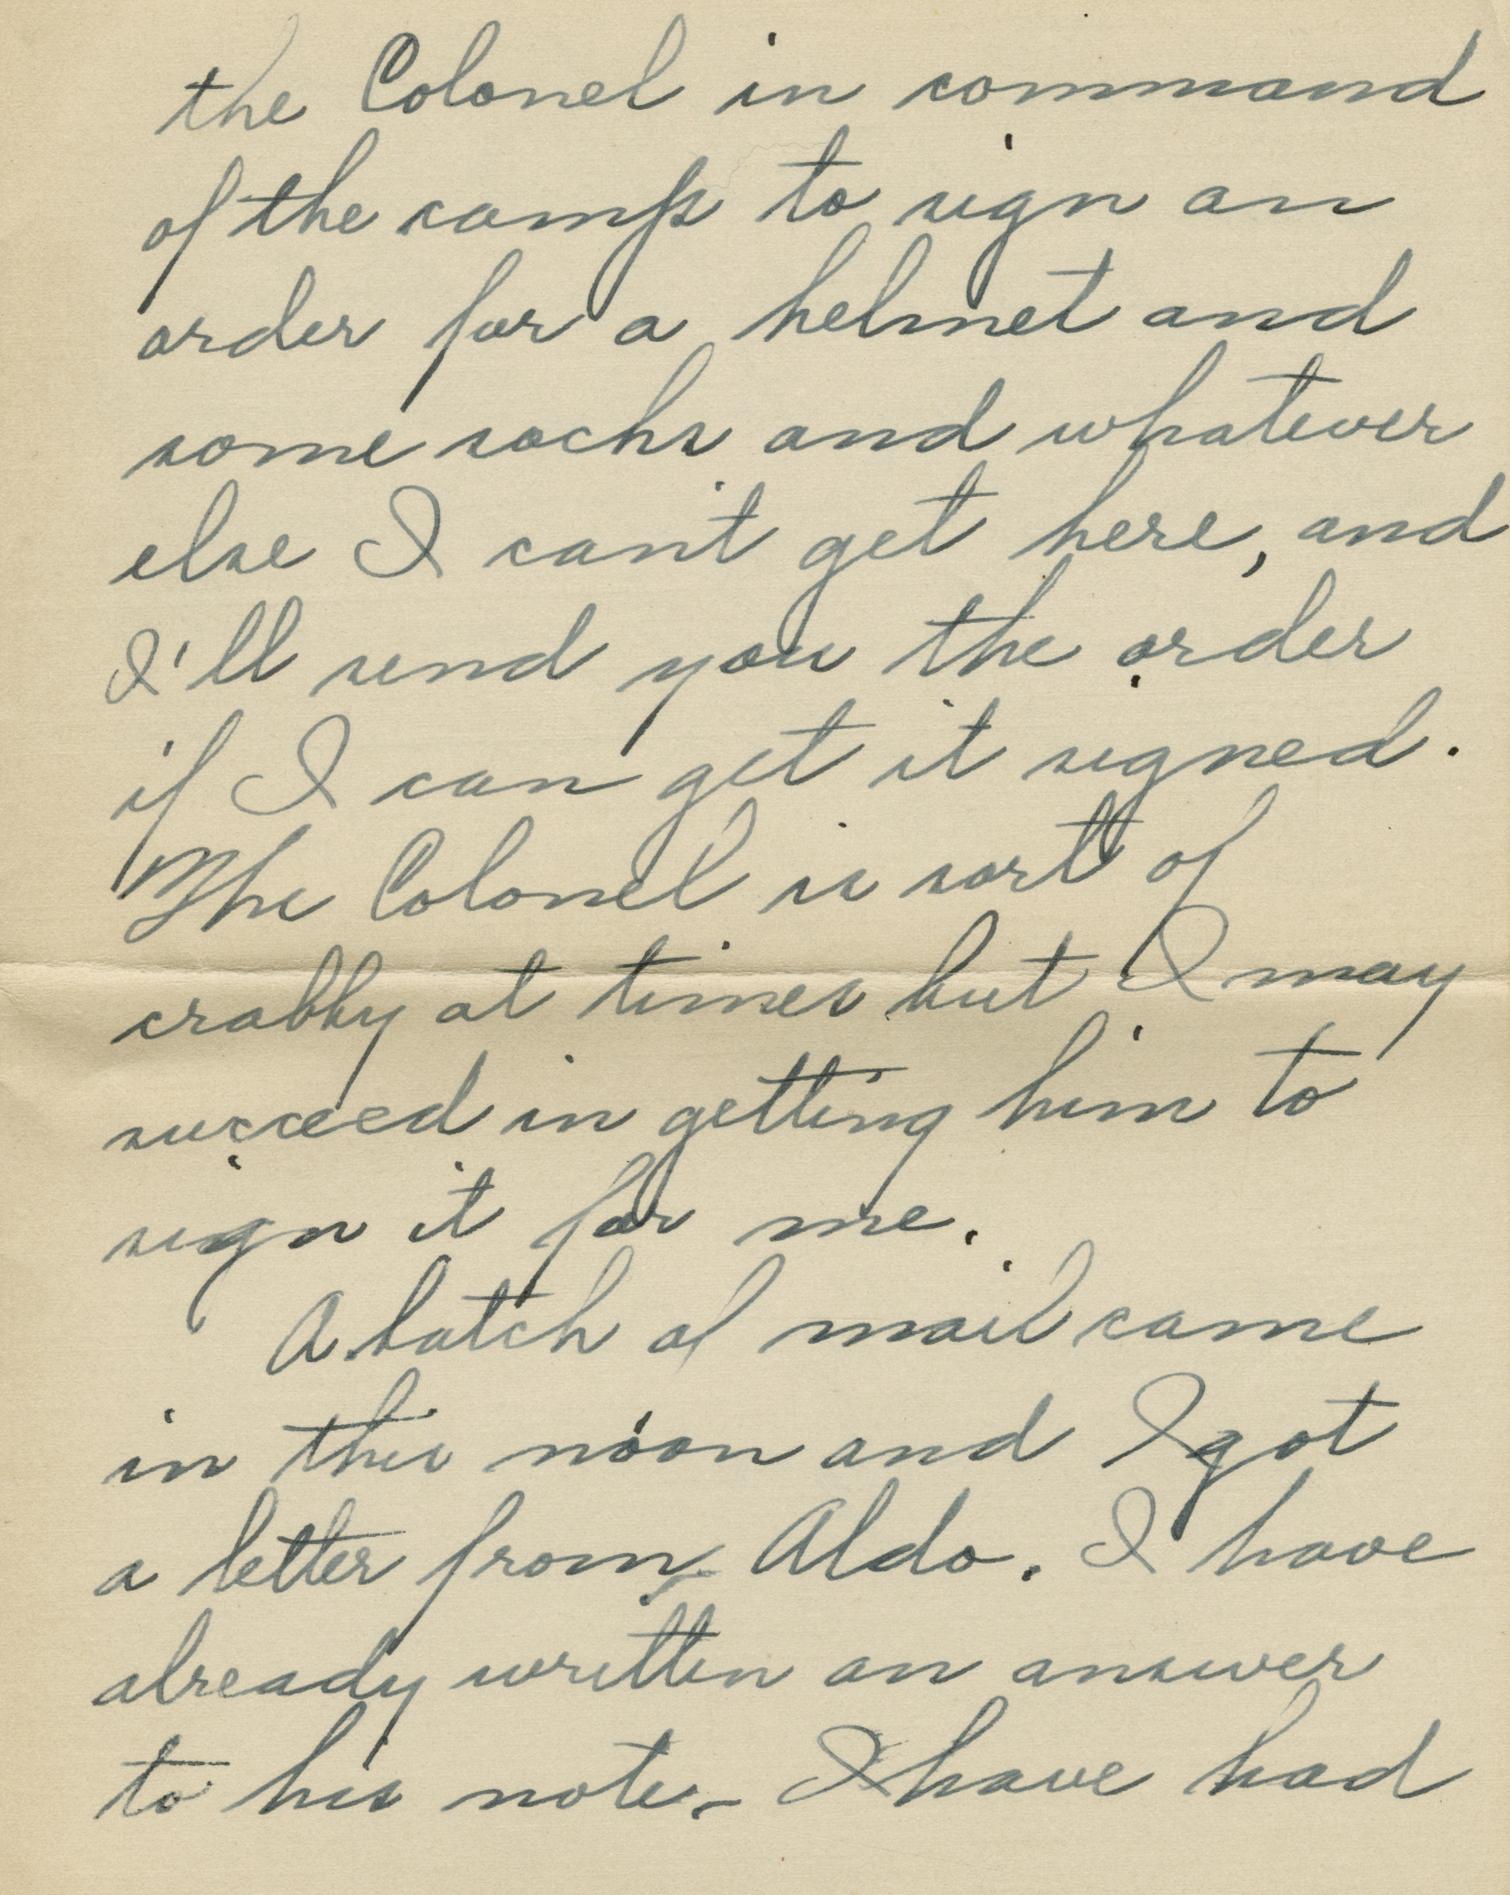 the Colonel in command
of the camp to sign an
order for a helmet and
some socks and whatever
else I can't get here, and
I'll send you the order
if I can get it signed.
The Colonel is sort of
crabby at times but I may
succeed in getting him to
sign it for me.
A batch of mail came
in this noon and I got
a letter from Aldo. I have
already written an answer
to his note. I have had